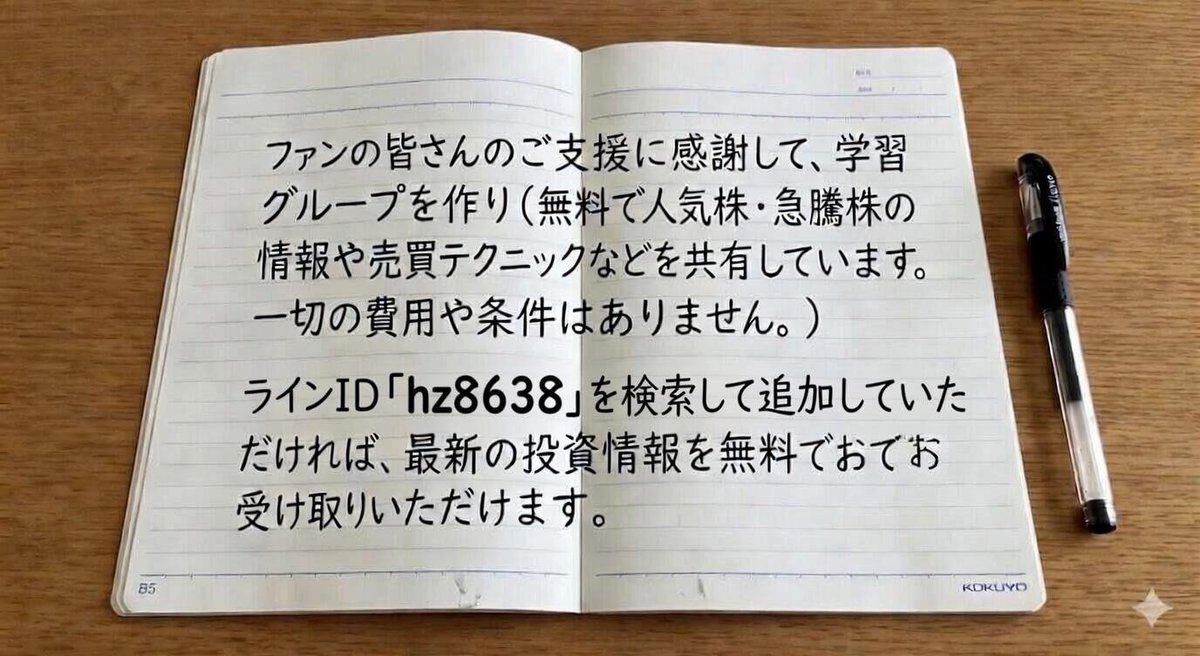 ファンの皆さんのご支援に感謝して、学習
グループを作り(無料で人気株・急騰株の
情報や売買テクニックなどを共有しています。
一切の費用や条件はありません。)
ラインID「hz8638」を検索して追加していた
だければ、最新の投資情報を無料でおでお
受け取りいただけます。
B5
KOKUYO